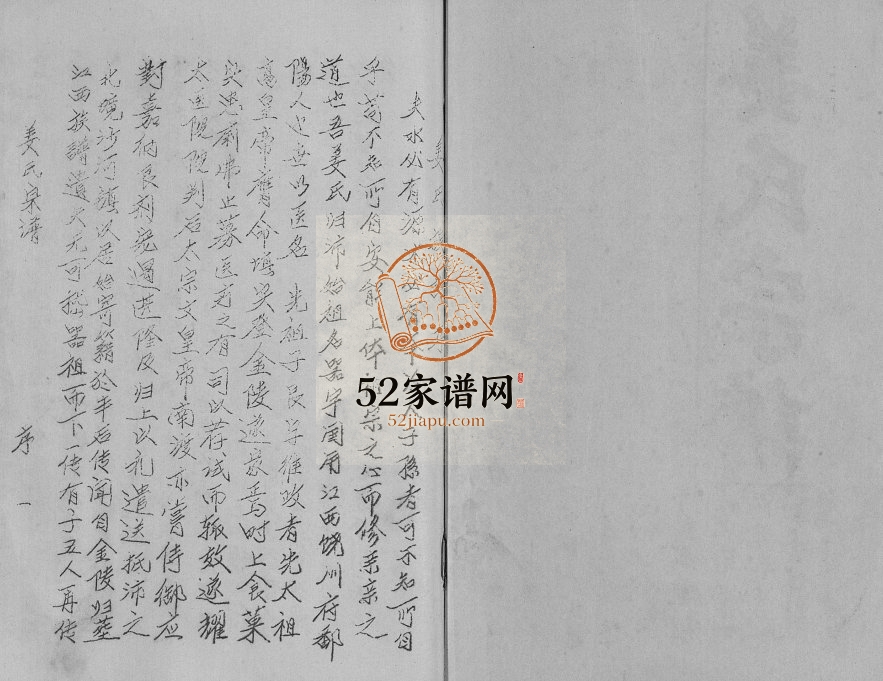 姜氏
夫水必有源木必有 子孫者可不知所自
乎苟不知所自安能上体 宗之心而修系亲之
道也吾姜氏归沛始祖名器字 用江西饶州府鄱
陽人也世以医名 先祖子良字惟政者先太祖
高皇帝膺命鴻 登金陵遂 焉时上食菓
 患 弗止募医 之有司以荐试而辄效遂耀
太医院院判后太宗文皇帝南渡亦嘗侍御应
對嘉 良剂 遇甚隆及归上以礼遣送抵沛之
北境沙河镇以居始寄籍於丰后传闻自金陵归葬
江西族譜遺失无可稽器祖而下一传有子五人再传
姜氏宗谱
序 一
52家谱网
52jiapu.com